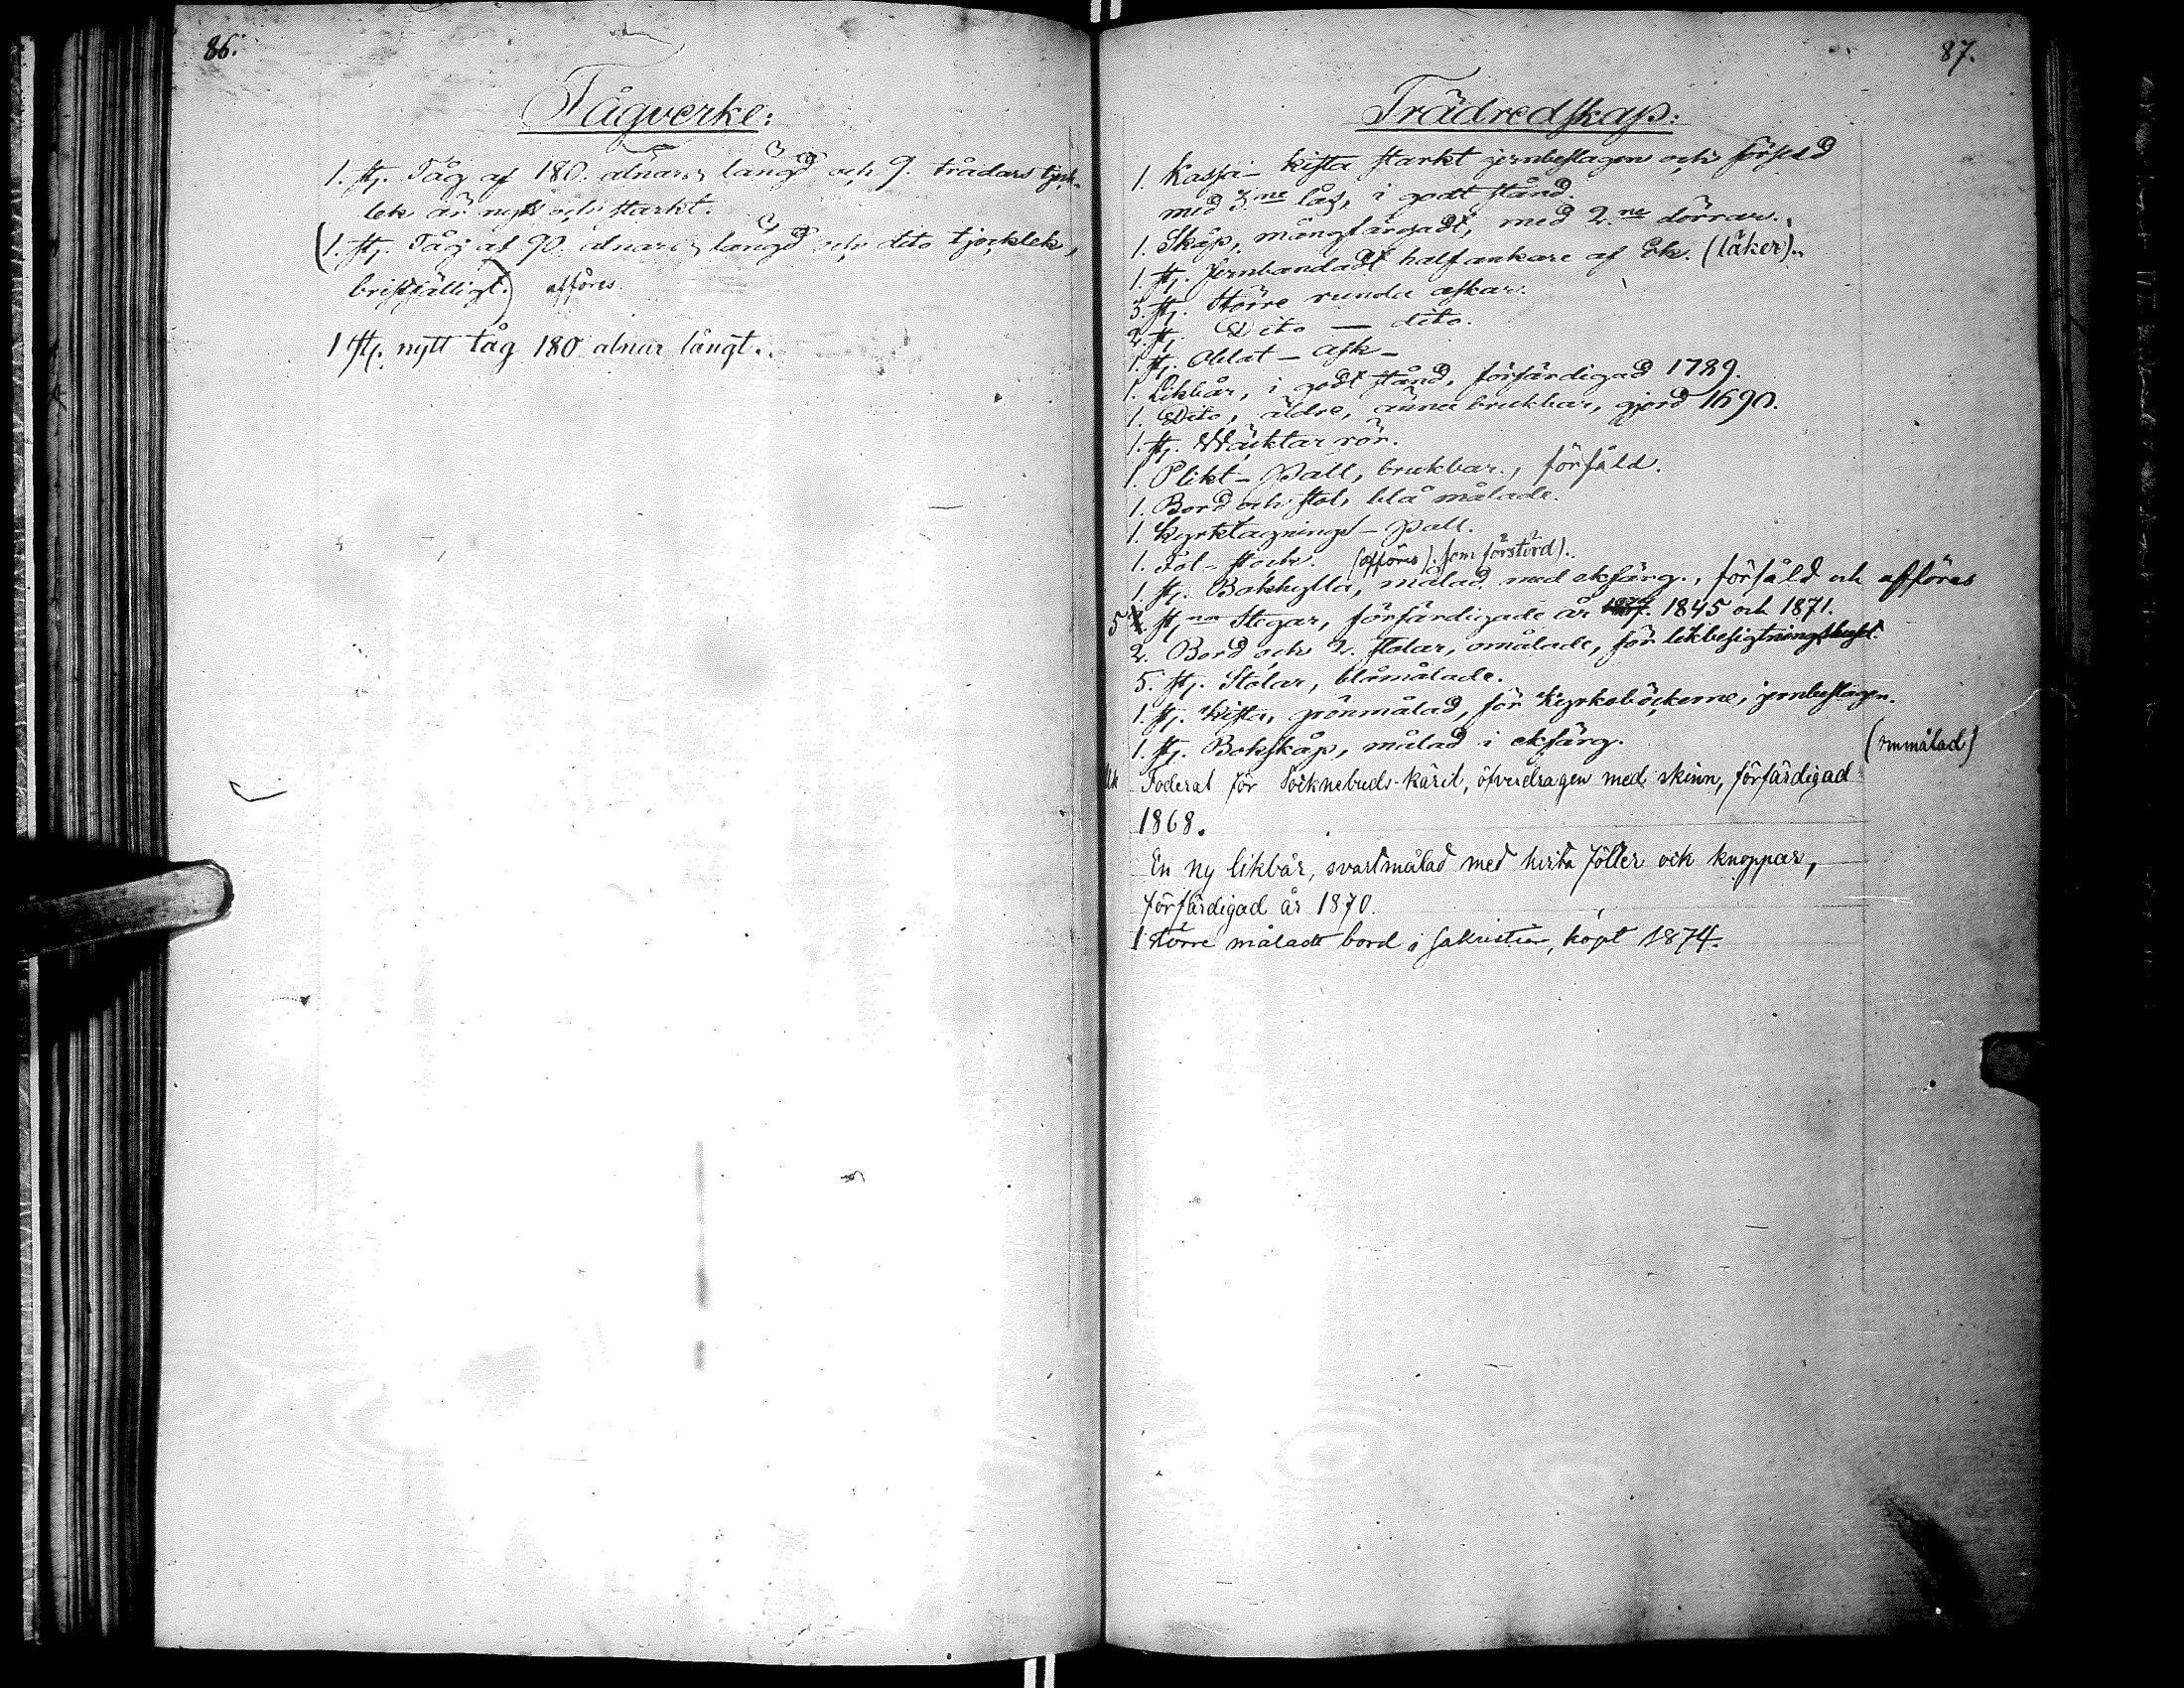 86.
Tågverke:
1. st. Tåg af 180. alnars längd och 9. trådars tjock-
lek är nytt och starkt.
(1. st. Tåg af 90. alnars längd och dito tjocklek,
bristfälligt.) afföres.
1 st. nytt tåg 180 alnar långt.
87.
Trädredskap:
1. Kassa-kista starkt jernbeslagen och försedd
med 3.ne lås, i godt stånd.
1. Skåp, mångfärgadt, med 2.ne dörrar.
1. st. Jernbandadt halfankare af Ek. (läker).
3. st. Större runda askar.
2. st. Dito — dito.
1. st. Oblat-ask-
1. Likbår, i godt stånd, förfärdigad 1789.
1. Dito, äldre, ännu brukbar, gjord 1690.
1. st. Wäcktar rör.
1. Plikt-Pall, brukbar., försåld.
1. Bord och stol, blå målade.
1. Kyrktagnings-Pall.
1. Fot-stock. (afföres) som förstörd).
1. st. Bokhylla, målad med ekfärg., försåld och afföres
5 st. Stegar, förfärdigade år 1845 och 1871.
2. Bord och 2. stolar, omålade, för likbesigtningshuset.
5. st. Stolar, blåmålade.
1. st. Kista, grönmålad, för Kyrkoböckerne, jernbeslagen.
1. st. Bokskåp, målad i ekfärg. (ommålad)
Foderal för Socknebuds-käril, öfverdragen med skinn, förfärdigad
1868.
En ny likbår, svartmålad med hvita fötter och knoppar,
förfärdigad år 1870.
1 större måladt bord i sakristian, köpt 1874.